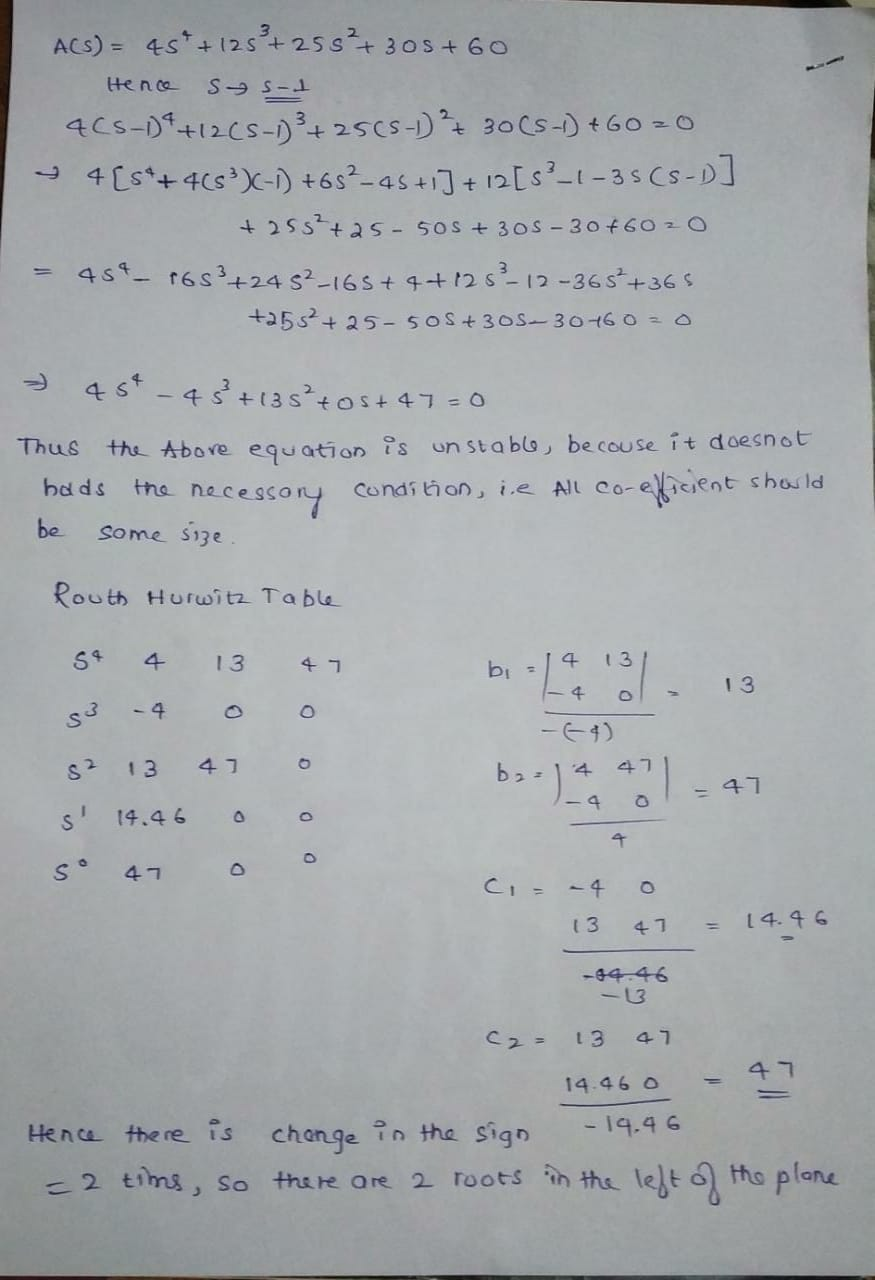 A(S) = 4S⁴ + 12S³ + 25S² + 30S + 60
Hence S → S-1
4(S-1)⁴ + 12(S-1)³ + 25(S-1)² + 30(S-1) + 60 = 0
→ 4[S⁴ + 4(S³)(-1) + 6S² - 4S + 1] + 12[S³ - 1 - 3S(S-1)]
+ 25S² + 25 - 50S + 30S - 30 + 60 = 0
= 4S⁴ - 16S³ + 24S² - 16S + 4 + 12S³ - 12 - 36S² + 36S
+25S² + 25 - 50S + 30S - 30 + 60 = 0
⇒ 4S⁴ - 4S³ + 13S² + 0S + 47 = 0
Thus the Above equation is unstable, because it doesnot
holds the necessary condition, i.e All co-efficient should
be some size.
Routh Hurwitz Table
S⁴ 4 13 47
S³ -4 0 0
S² 13 47 0
S¹ 14.46 0 0
S⁰ 47 0 0
b₁ = |4 13|
|-4 0| = 13
-(-4)
b₂ = |4 47|
|-4 0| = 47
4
C₁ = -4 0
13 47 = 14.46
-13
C₂ = 13 47
14.46 0 = 47
-14.46
Hence there is change in the sign
= 2 tims, so there are 2 roots in the left of the plane